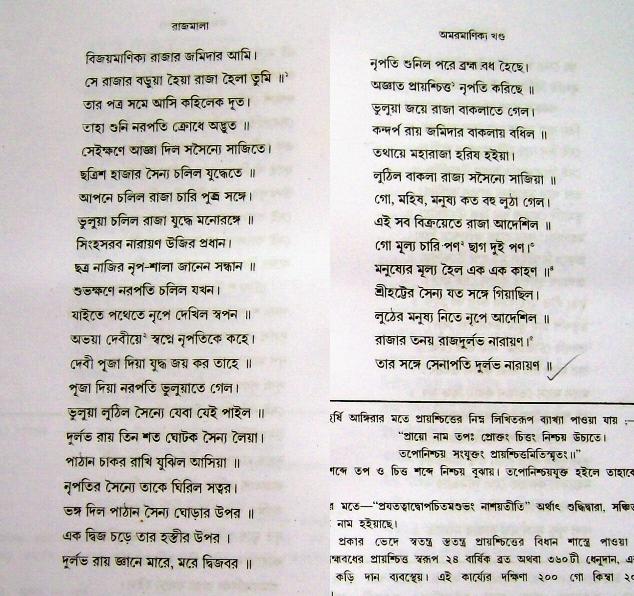 রাজমালা
বিজয়মাণিক্য রাজার জমিদার আমি।
সে রাজার বড়ুয়া হৈয়া রাজা হৈলা তুমি ॥১
তার পত্র সমে আসি কহিলেক দূত।
তাহা শুনি নরপতি ক্রোধে অদ্ভুত ॥
সেইক্ষণে আজ্ঞা দিল সসৈন্যে সাজিতে।
ছত্রিশ হাজার সৈন্য চলিল যুদ্ধেতে ॥
আপনে চলিল রাজা চারি পুত্র সঙ্গে।
ভুলুয়া চলিল রাজা যুদ্ধে মনোরঙ্গে ॥
সিংহসরব নারায়ণ উজির প্রধান।
ছত্র নাজির নৃপ-শালা জানেন সন্ধান ॥
শুভক্ষণে নরপতি চলিল যখন।
যাইতে পথেতে নৃপে দেখিল স্বপন ॥
অভয়া দেবীয়ে২ স্বপ্নে নৃপতিকে কহে।
দেবী পূজা দিয়া যুদ্ধ জয় কর তাহে ॥
পূজা দিয়া নরপতি ভুলুয়াতে গেল।
ভুলুয়া লুঠিল সৈন্যে যেবা যেই পাইল ॥
দুর্লভ রায় তিন শত ঘোটক সৈন্য লৈয়া।
পাঠান চাকর রাখি যুঝিল আসিয়া ॥
নৃপতির সৈন্যে তাকে ঘিরিল সত্বর।
ভঙ্গ দিল পাঠান সৈন্য ঘোড়ার উপর ॥
এক দ্বিজ চড়ে তার হস্তীর উপর।
দুর্লভ রায় জ্ঞানে মারে, মরে দ্বিজবর ॥
অমরমাণিক্য খণ্ড
নৃপতি শুনিল পরে ব্রহ্ম বধ হৈছে।
অজ্ঞাত প্রায়শ্চিত্ত নৃপতি করিছে ॥
ভুলুয়া জয়ে রাজা বাকলাতে গেল।
কন্দর্প রায় জমিদার বাকলায় বধিল ॥
তথায়ে মহারাজা হরিষ হইয়া।
লুঠিল বাকলা রাজ্য সসৈন্যে সাজিয়া ॥
গো, মহিষ, মনুষ্য কত বহু লুঠা গেল।
এই সব বিক্রয়েতে রাজা আদেশিল ॥
গো মূল্য চারি পণ২ ছাগ দুই পণ।৩
মনুষ্যের মূল্য হৈল এক এক কাহণ ॥৪
শ্রীহট্টের সৈন্য যত সঙ্গে গিয়াছিল।
লুঠের মনুষ্য নিতে নৃপে আদেশিল ॥
রাজার তনয় রাজদুর্লভ নারায়ণ।৫
তার সঙ্গে সেনাপতি দুর্লভ নারায়ণ ॥
র্ষি আঙ্গিরার মতে প্রায়শ্চিত্তের নিম্ন লিখিতরূপ ব্যাখ্যা পাওয়া যায় ;—
“প্রায়ো নাম তপঃ প্রোক্তং চিত্তং নিশ্চয় উচ্যতে।
তপোনিশ্চয় সংযুক্তং প্রায়শ্চিত্তমিতিস্মৃতং॥”
শব্দে তপ ও চিত্ত শব্দে নিশ্চয় বুঝায়। তপোনিশ্চয়যুক্ত হইলে তাহাকে
র মতে—“প্রযতত্বাদ্বোপচিতমশুভং নাশয়তীতি” অর্থাৎ শুদ্ধিদ্বারা, সঞ্চিত
নাম হইয়াছে।
প্রকার ভেদে স্বতন্ত্র স্বতন্ত্র প্রায়শ্চিত্তের বিধান শাস্ত্রে পাওয়া
হ্মবধের প্রায়শ্চিত্ত স্বরূপ ২৪ বার্ষিক ব্রত অথবা ৩৬০টী ধেনুদান,
কড়ি দান ব্যবস্থেয়। এই কার্য্যের দক্ষিণা ২০০ গো কিম্বা